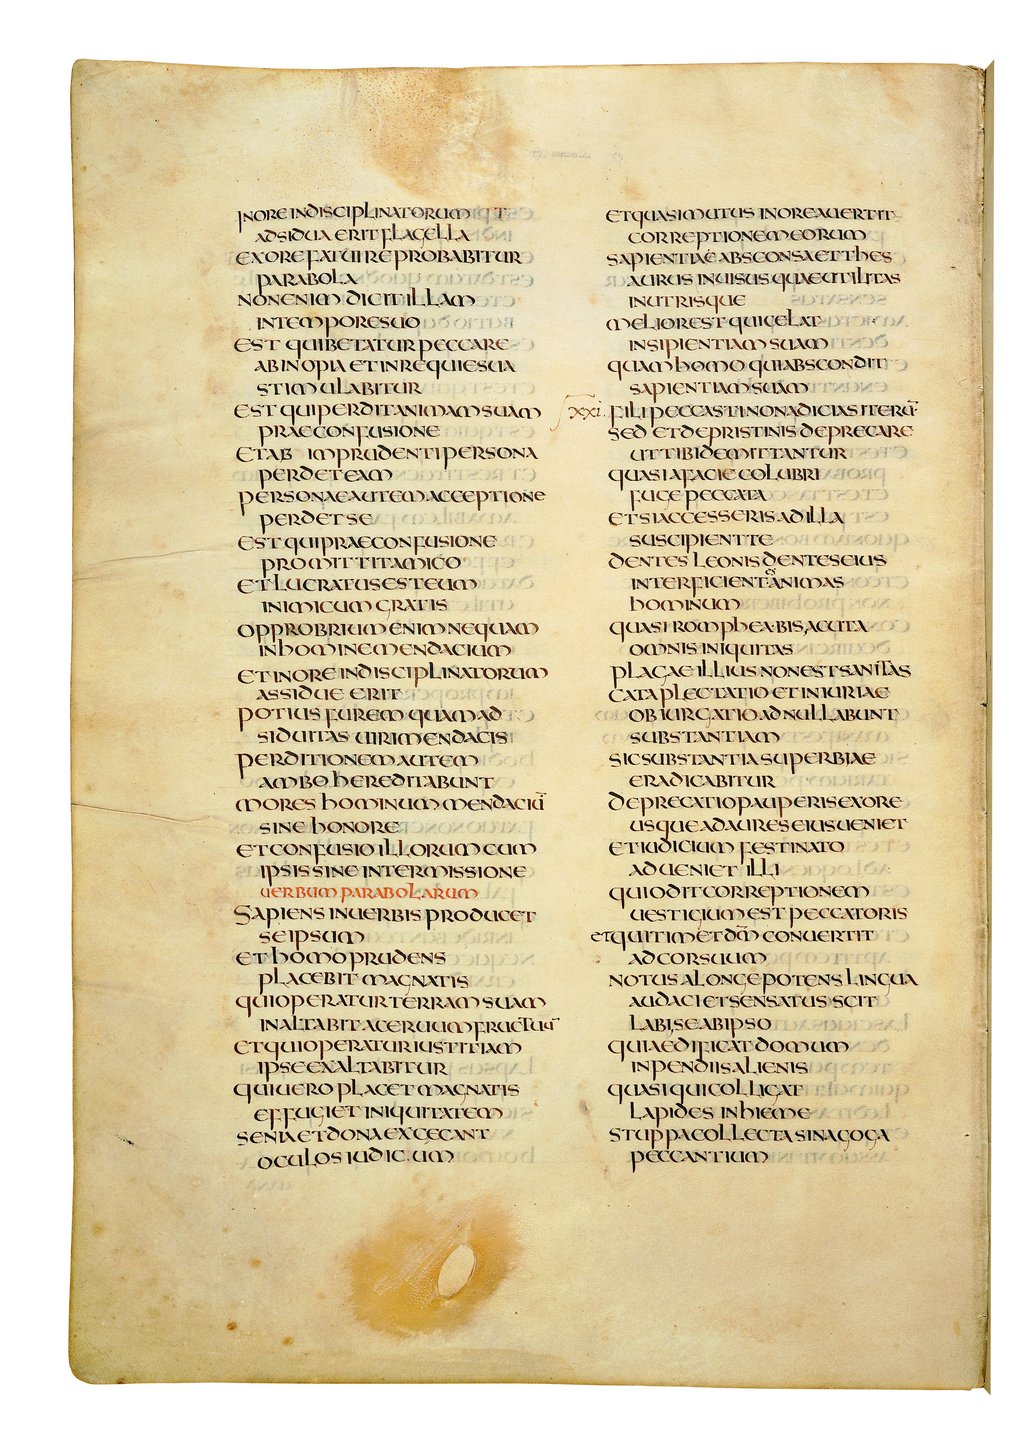 INORE INDISCIPLINATORUM
ADSIDUA ERIT FLAGELLA
EXORE FATUI REPROBABITUR
PARABOLA
NONENIM DICIT ILLAM
INTEMPORESUO
EST QUIBETATUR PECCARE
ABINOPIA ET INREQUIESUA
STIMULABITUR
EST QUIPERDITANIMAMSUAM
PRAECONFUSIONE
ETAB IMPRUDENTIPERSONA
PERDETEAM
PERSONAEAUTEMACCEPTIONE
PERDETSE
EST QUIPRAECONFUSIONE
PROMITTITAMICO
ETLUCRATUSESTEUM
INIMICUM GRATIS
OPPROBRIUMENIMNEQUAM
INHOMINEMENDACIUM
ETINORE INDISCIPLINATORUM
ASSIDUE ERIT
POTIUS FUREM QUAMAD
SIDUITAS UIRIMENDACIS
PERDITIONEMAUTEM
AMBO HEREDITABUNT
MORES HOMINUMMENDACIŪ
SINE HONORE
ETCONFUSIOILLORUMCUM
IPSISSINEINTERMISSIONE
UERBUM PARABOLARUM
SAPIENS INUERBIS PRODUCET
SEIPSUM
ET HOMOPRUDENS
PLACEBIT MAGNATIS
QUIOPERATURTERRAMSUAM
INALTABIT ACERUUMFRUCTUŪ
ETQUIOPERATURIUSTITIAM
IPSEEXALTABITUR
QUIUERO PLACET MAGNATIS
EFFUGIET INIQUITATEM
SENIAETDONAEXCECANT
OCULOSIUDICUM
ETQUASIMUTUS INOREAUERTIT
CORREPTIONEMEORUM
SAPIENTIAE ABSCONSAETTHES
AURUS INUISUSQUAEUTILITAS
INUTRISQUE
MELIOREST QUICELAT
INSIPIENTIAMSUAM
QUAMHOMO QUIABSCONDIT
SAPIENTIAMSUAM
XXI. FILIPECCASTINONADICIASITERŪ
SED ETDEPRISTINIS DEPRECARE
UTTIBIDEMITTANTUR
QUASIAFACIE COLUBRI
FUGE PECCATA
ETSIACCESSERISADILLA
SUSCIPIENTTE
DENTES LEONIS DENTESEIUS
INTERFICIENTĀNIMAS
HOMINUM
QUASI ROMPHEABISACUTA
OMNIS INIQUITAS
PLAGAEILLIUSNONESTSANITAS
CATAPLECTATIO ETINIURIAE
OBIURGATIOADNULLABUNT
SUBSTANTIAM
SICSUBSTANTIASUPERBIAE
ERADICABITUR
DEPRECATIOPAUPERISEXORE
USQUEADAURESEIUSUENIET
ETIUDICIUM FESTINATO
ADUENIET ILLI
QUIODITCORREPTIONEM
UESTIGIUMEST PECCATORIS
ETQUITIMETDM̄ CONUERTIT
ADCORSUUM
NOTUSALONGEPOTENS LINGUA
AUDACIETSENSATUS SCIT
LABISEABIPSO
QUIAEDIFICATDOMUM
INPENDIISALIENIS
QUASIQUICOLLIGAT
LAPIDES INHIEME
STUPPACOLLECTASINAGOGA
PECCANTIUM